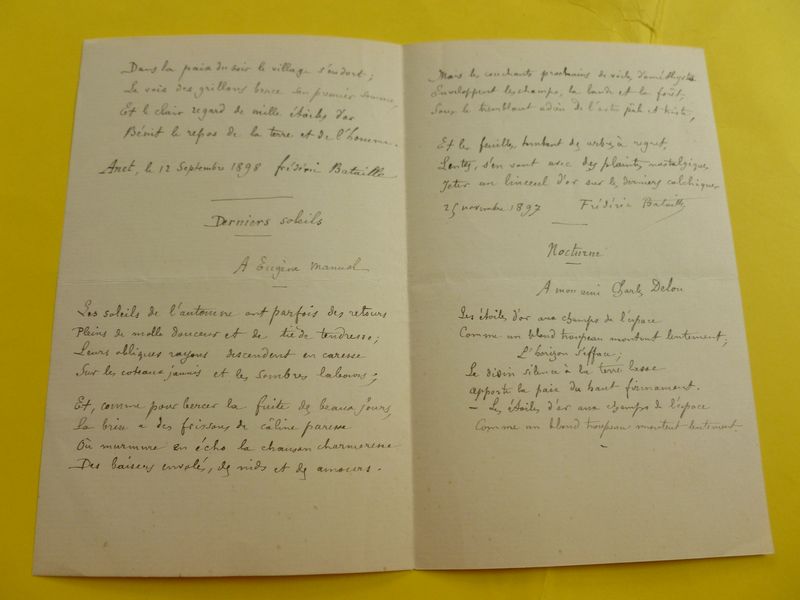 Dans la paix du soir le village s'endort;
La voix des grillons berce son premier somme,
Et le clair regard de mille étoiles d'or
Bénit le repos de la terre et de l'homme.
Anet, le 12 Septembre 1898 frédéric Bataille
Derniers soleils
A Eugène Manuel
Les soleils de l'automne ont parfois des retours
Pleins de molle douceur et de tiède tendresse;
Leurs obliques rayons descendent en caresse
Sur les coteaux jaunis et les sombres labours;
Et, comme pour bercer la fuite des beaux jours,
La brise a des frissons de câline paresse
Où murmure en écho la chanson charmeresse
Des baisers envolés, des nids et des amours.
Mais les couchants prochains de voiles d'améthyste
Enveloppent les champs, la lande et la forêt,
Sous le tremblant adieu de l'astre pâle et triste,
Et les feuilles, tombant des arbres à regret,
Lentes, s'en vont avec des plaintes nostalgiques
Jeter un linceul d'or sur les derniers colchiques
25 novembre 1897 Frédéric Bataille
Nocturne
A mon ami Charles Delon
Les étoiles d'or aux champs de l'espace
Comme un blond troupeau montent lentement;
L'horizon s'efface;
Le divin silence à la terre lasse
apporte la paix du haut firmament.
— Les étoiles d'or aux champs de l'espace
Comme un blond troupeau montent lentement.